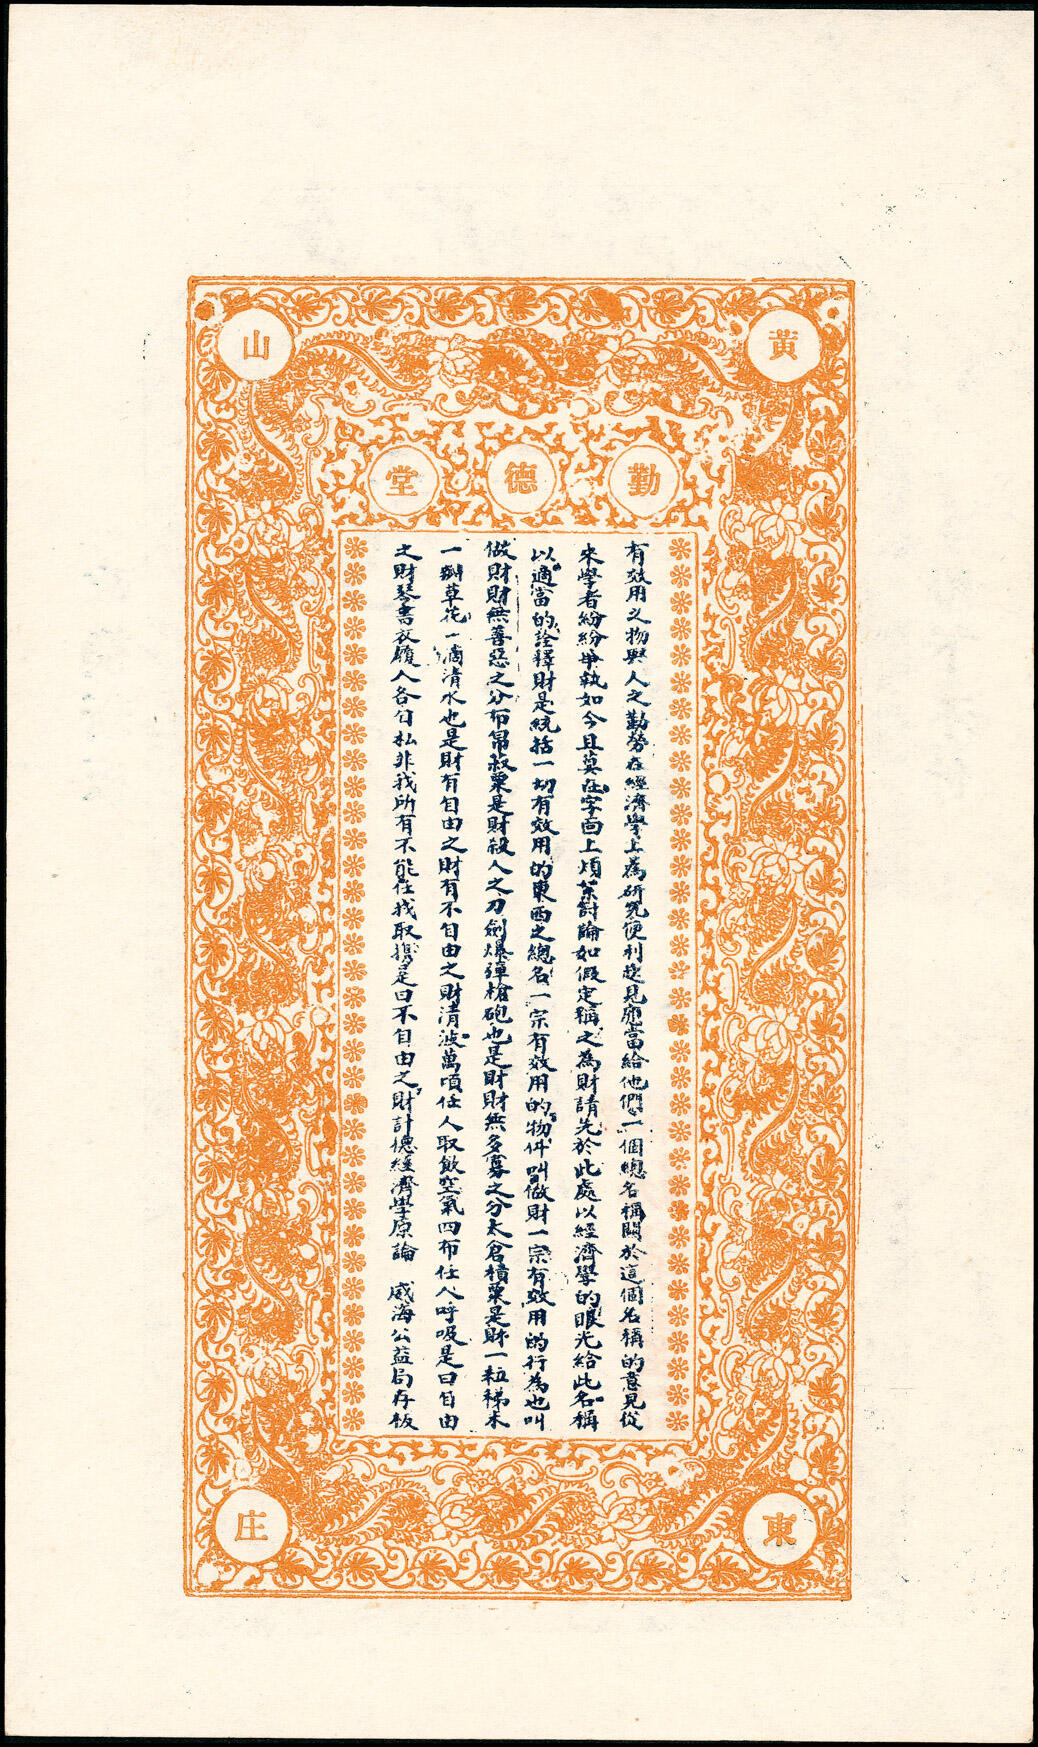 黃山
勤德堂
有效用之物與人之勤勞在經濟學上為研究便利起見應當給他們一個總名稱關於這個名稱的意見從
來學者紛紛爭執如今且莫在字面上煩絮討論如假定稱之為財請先於此處以經濟學的眼光給此名稱
以適當的詮釋財是統括一切有效用的東西之總名一宗有效用的物件叫做財一宗有效用的行為也叫
做財財無善惡之分布帛菽粟是財殺人之刀劍爆彈槍砲也是財財無多寡之分太倉積粟是財一粒稊米
一瓣草花一滴清水也是財有自由之財有不自由之財清波萬頃任人取飲空氣四布任人呼吸是曰自由
之財琴書衣履人各自私非我所有不能任我取攜是曰不自由之財計德經濟學原論 威海公益局存板
東庄